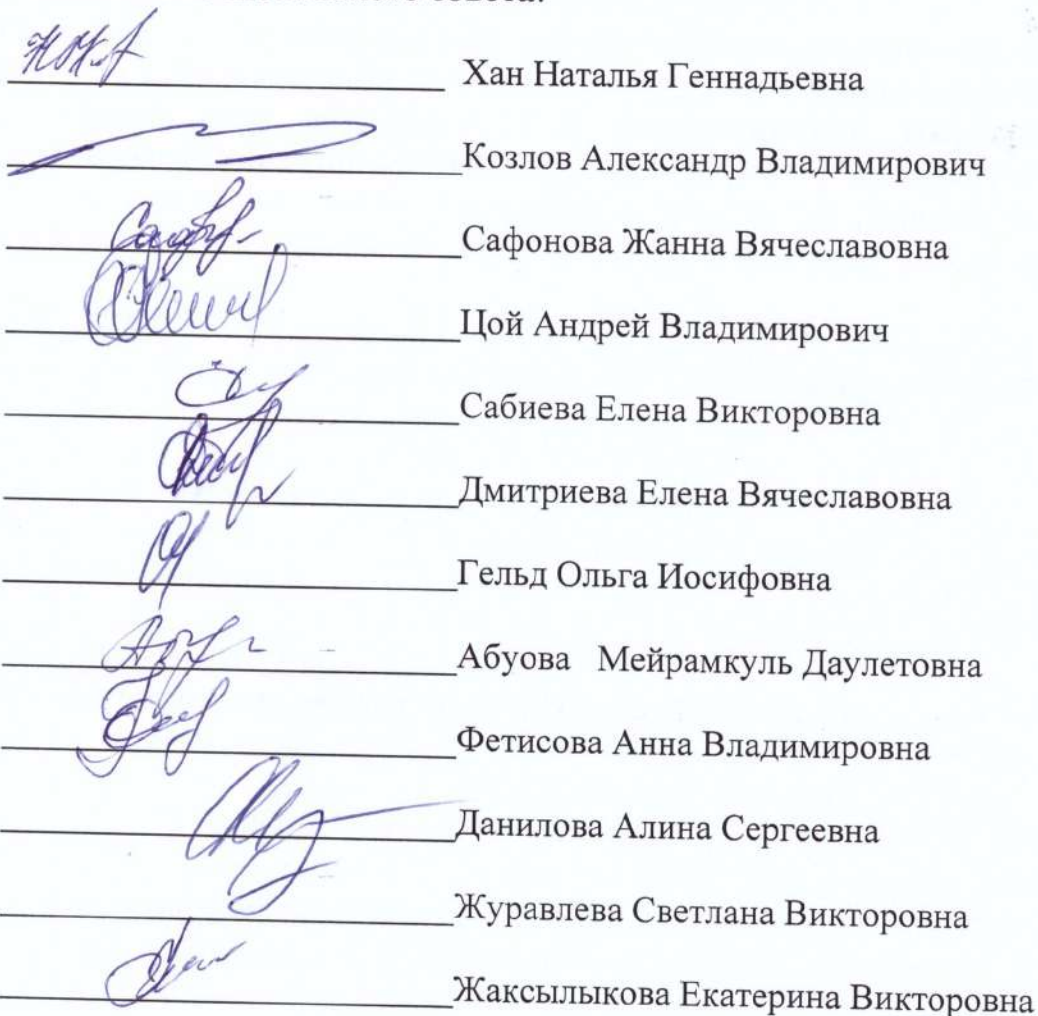 Хан Наталья Геннадьевна
Козлов Александр Владимирович
Сафонова Жанна Вячеславовна
Цой Андрей Владимирович
Сабиева Елена Викторовна
Дмитриева Елена Вячеславовна
Гельд Ольга Иосифовна
Абуова Мейрамкуль Даулетовна
Фетисова Анна Владимировна
Данилова Алина Сергеевна
Журавлева Светлана Викторовна
Жаксылыкова Екатерина Викторовна